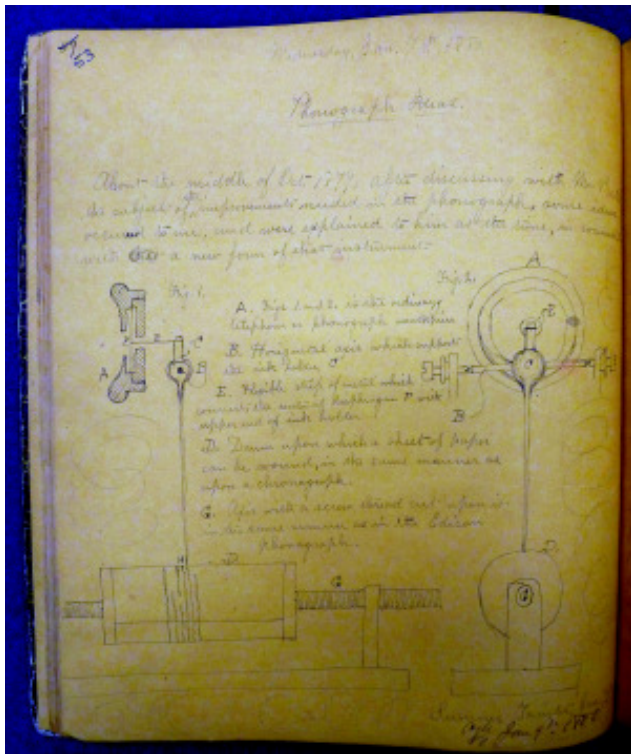 Wednesday, Jan.
Phonograph
About the middle of Oct 1879, after discussing with
the subject of improvements needed in the phonograph, some
occured to me, and were explained to him at the time, in
with a new form of that instrument.
Fig 1.
Fig 2.
A
A. Figs 1 and 2. is the ordinary
telephone or phonograph mouthpiece
B. Horizontal axis which supports
the ink holder C
E. Flexible strip of metal which
connects the center of diaphragm F with
upper end of ink holder
D. Drum upon which a sheet of paper
can be wound, in the same manner as
upon a chronograph.
G. Axis with a screw thread cut upon it
in the same manner as in the Edison
phonograph.
F
E
C
A
B
E
B
H
D
G
D
G
Sumner Tainter
Jan 9th